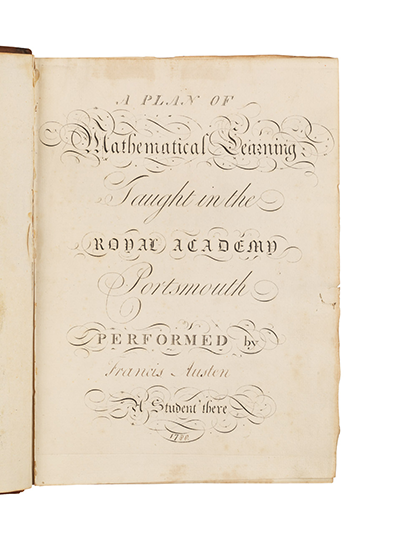 A PLAN OF
Mathematical Learning
Taught in the
ROYAL ACADEMY
Portsmouth
PERFORMED by
Francis Austen
A Student there
1788